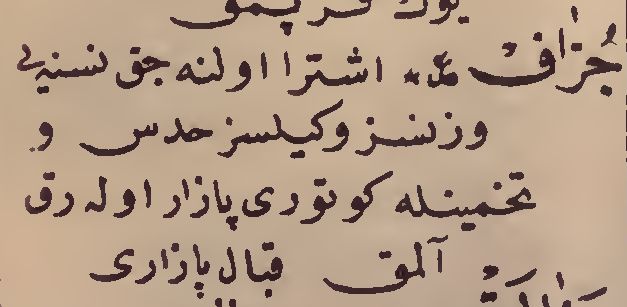 یوك قرپمق
جُزَاف اشترا اولنه جق نسنه یی
وزنسز و كیلسز حدس و
تخمینله كوتوری پازار اوله رق
آلمق قبال پازاری